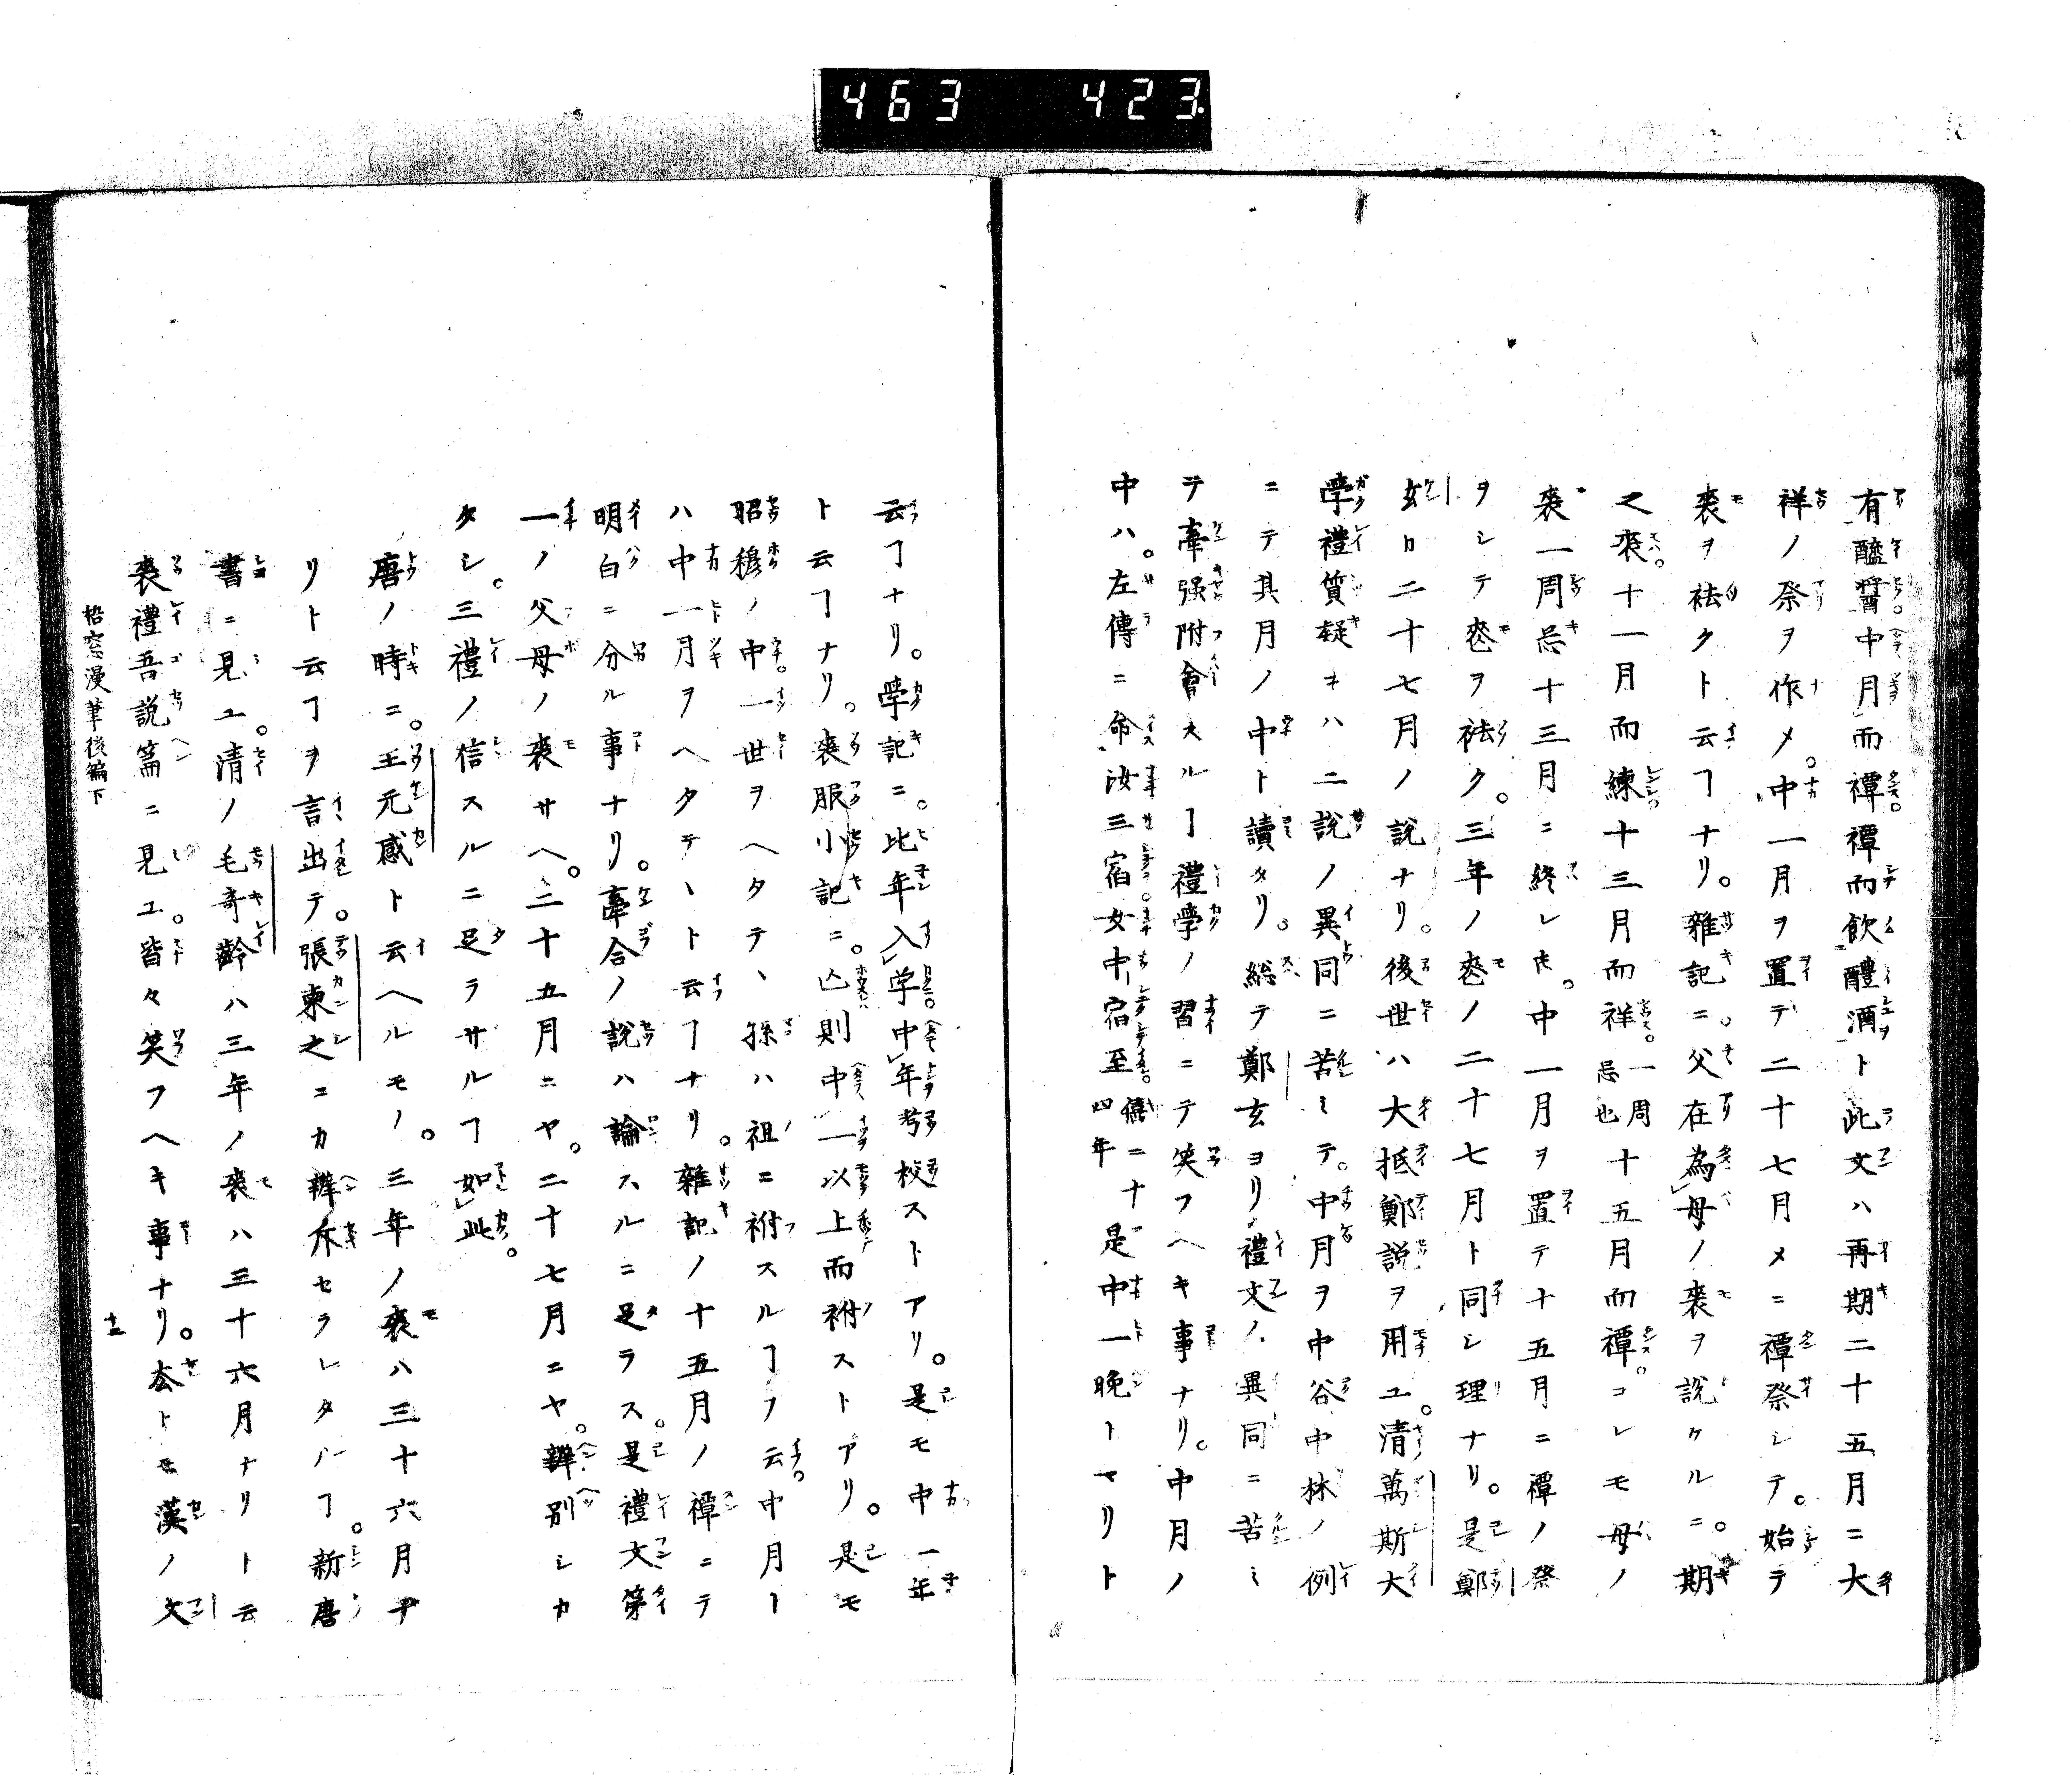 463 423
有醯醬中月而禫禫而飲醴酒ト此文ハ再期二十五月ニ大
祥ノ祭ヲ作メ。中一月ヲ置テ二十七月メニ禫祭シテ。始テ
喪ヲ袪クト云ヿナリ。雜記ニ。父在為母ノ喪ヲ説ケルニ。期
之喪。十一月而練十三月而祥。一周忌也十五月而禫。コレモ母ノ
喪一周忌十三月ニ終レ𪜈。中一月ヲ置テ十五月ニ禫ノ祭
ヲシテ喪ヲ袪ク。三年ノ喪ノ二十七月ト同シ理ナリ。是鄭
玄カ二十七月ノ説ナリ。後世ハ大抵鄭説ヲ用ユ。清萬斯大
學禮質疑キハ二説ノ異同ニ苦ミテ。中月ヲ中谷中林ノ例
ニテ其月ノ中ト讀タリ。総テ鄭玄ヨリ禮文ノ異同ニ苦ミ
テ牽强附會スルヿ禮學ノ習ニテ笑フヘキ事ナリ。中月ノ
中ハ。左傳ニ命汝三宿女中宿至僖二十四年是中一晚トマリト
云ヿナリ。學記ニ。比年入学中年考校ストアリ。是モ中一年
ト云ヿナリ。喪服小記ニ。亡則中一以上而祔ストアリ。是モ
昭穆ノ中一世ヲヘタテヽ孫ハ祖ニ祔スルヿヲ云。中月ト
ハ中一月ヲヘタテヽト云ヿナリ。雜記ノ十五月ノ禫ニテ
明白ニ分ル事ナリ。牽合ノ説ハ論スルニ足ラス。是禮文第
一ノ父母ノ喪サヘ。二十五月ニヤ。二十七月ニヤ。辨別シカ
タシ。三禮ノ信スルニ足ラサルヿ如此。
唐ノ時ニ。王元感ト云ヘルモノ。三年ノ喪ハ三十六月ナ
リト云ヿヲ言出テ。張柬之ニカ辨斥セラレタルヿ。新唐
書ニ見ユ。清ノ毛奇齡ハ三年ノ喪ハ三十六月ナリト云
喪禮吾説篇ニ見ユ。皆々笑フヘキ事ナリ。厺トモ漢ノ文
梧窓漫筆後編下
十二